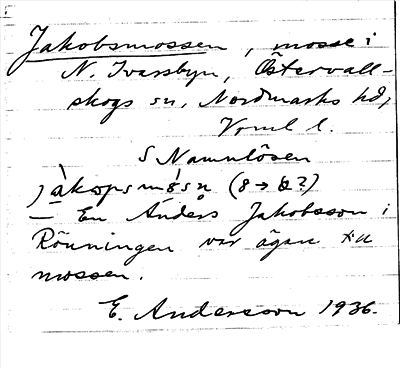 Jakobsmossen, mosse i
N. Ivarsbyn, Östervall-
skogs sn, Nordmarks hd,
Vrml l.
S Namnlösen
jàkɷpsmósn (8→ ?)
— En Anders Jakobsson i
Rönningen var ägare till
mossen.
E. Andersson 1936.